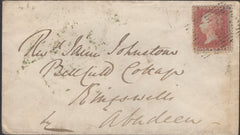 Revd James Johnstone
Bellfield Cottage
Kingswells
by Aberdeen